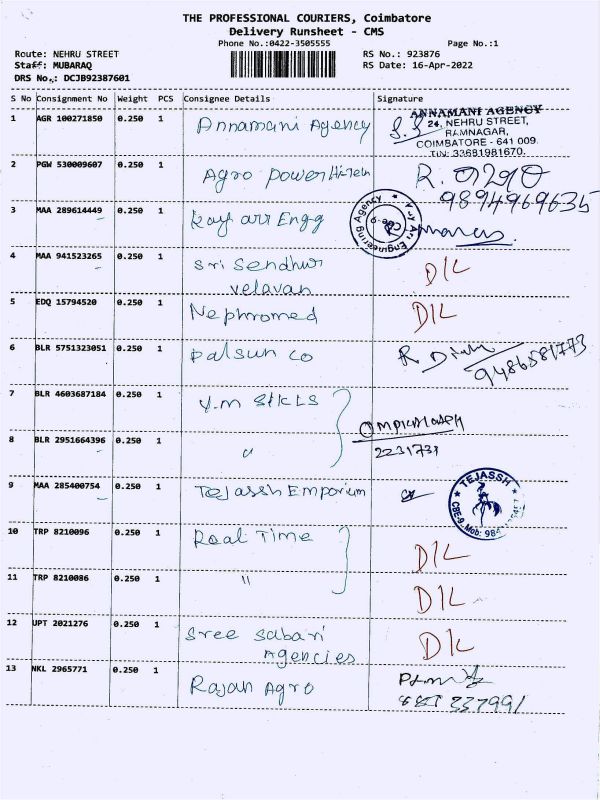 THE PROFESSIONAL COURIERS, Coimbatore
Delivery Runsheet - CMS
Phone No.:0422-3505555 Page No.:1
Route: NEHRU STREET RS No.: 923876
Staff: MUBARAQ RS Date: 16-Apr-2022
DRS No.: DCJB92387601
S No Consignment No Weight PCS Consignee Details Signature
1 AGR 100271850 0.250 1 Annamani Agency
ANNAMANI AGENCY
24, NEHRU STREET,
RAMNAGAR,
COIMBATORE - 641 009.
TIN: 33681981670.
2 PGW 530009607 0.250 1 Agro power
9894969635
3 MAA 289614449 0.250 1 Kay arr Engg
Kay Arr Engineering Agency
4 MAA 941523265 0.250 1 Sri Sendhur D/L
velavan
5 EDQ 15794520 0.250 1 Nephromed D/L
6 BLR 5751323051 0.250 1 Dalsun co
9486581773
7 BLR 4603687184 0.250 1 V.M
8 BLR 2951664396 0.250 1 "
2231731
9 MAA 285400754 0.250 1 Tejassh Emporium
TEJASSH
CBE-9. Mob: 984
10 TRP 8210096 0.250 1 Real Time D/L
11 TRP 8210086 0.250 1 " D/L
12 UPT 2021276 0.250 1 Sree Sabari D/L
Agencies
13 NKL 2965771 0.250 1 Rajan Agro